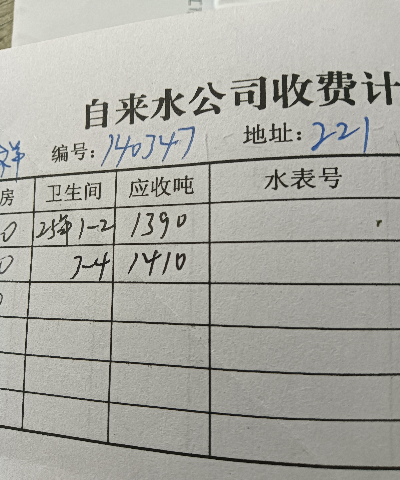 自来水公司收费计
编号:140347 地址:221
房 卫生间 应收吨 水表号
0 25年1-2 1390
0 3-4 1410